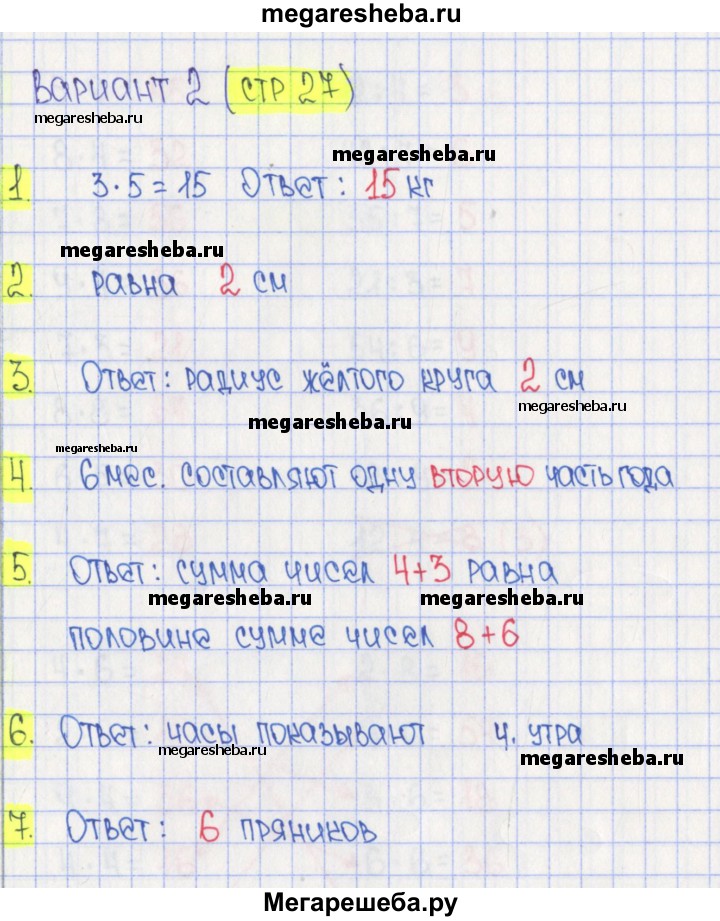 megaresheba.ru
Вариант 2 (стр 27)
megaresheba.ru
megaresheba.ru
1. 3·5=15 Ответ: 15 кг
megaresheba.ru
2. равна 2 см
3. Ответ: радиус жёлтого круга 2 см
megaresheba.ru
megaresheba.ru
megaresheba.ru
4. 6 мес. составляют одну вторую часть года
5. Ответ: сумма чисел 4+3 равна
megaresheba.ru megaresheba.ru
половине сумме чисел 8+6
6. Ответ: часы показывают ч. утра
megaresheba.ru
megaresheba.ru
7. Ответ: 6 пряников
Мегарешеба.ру